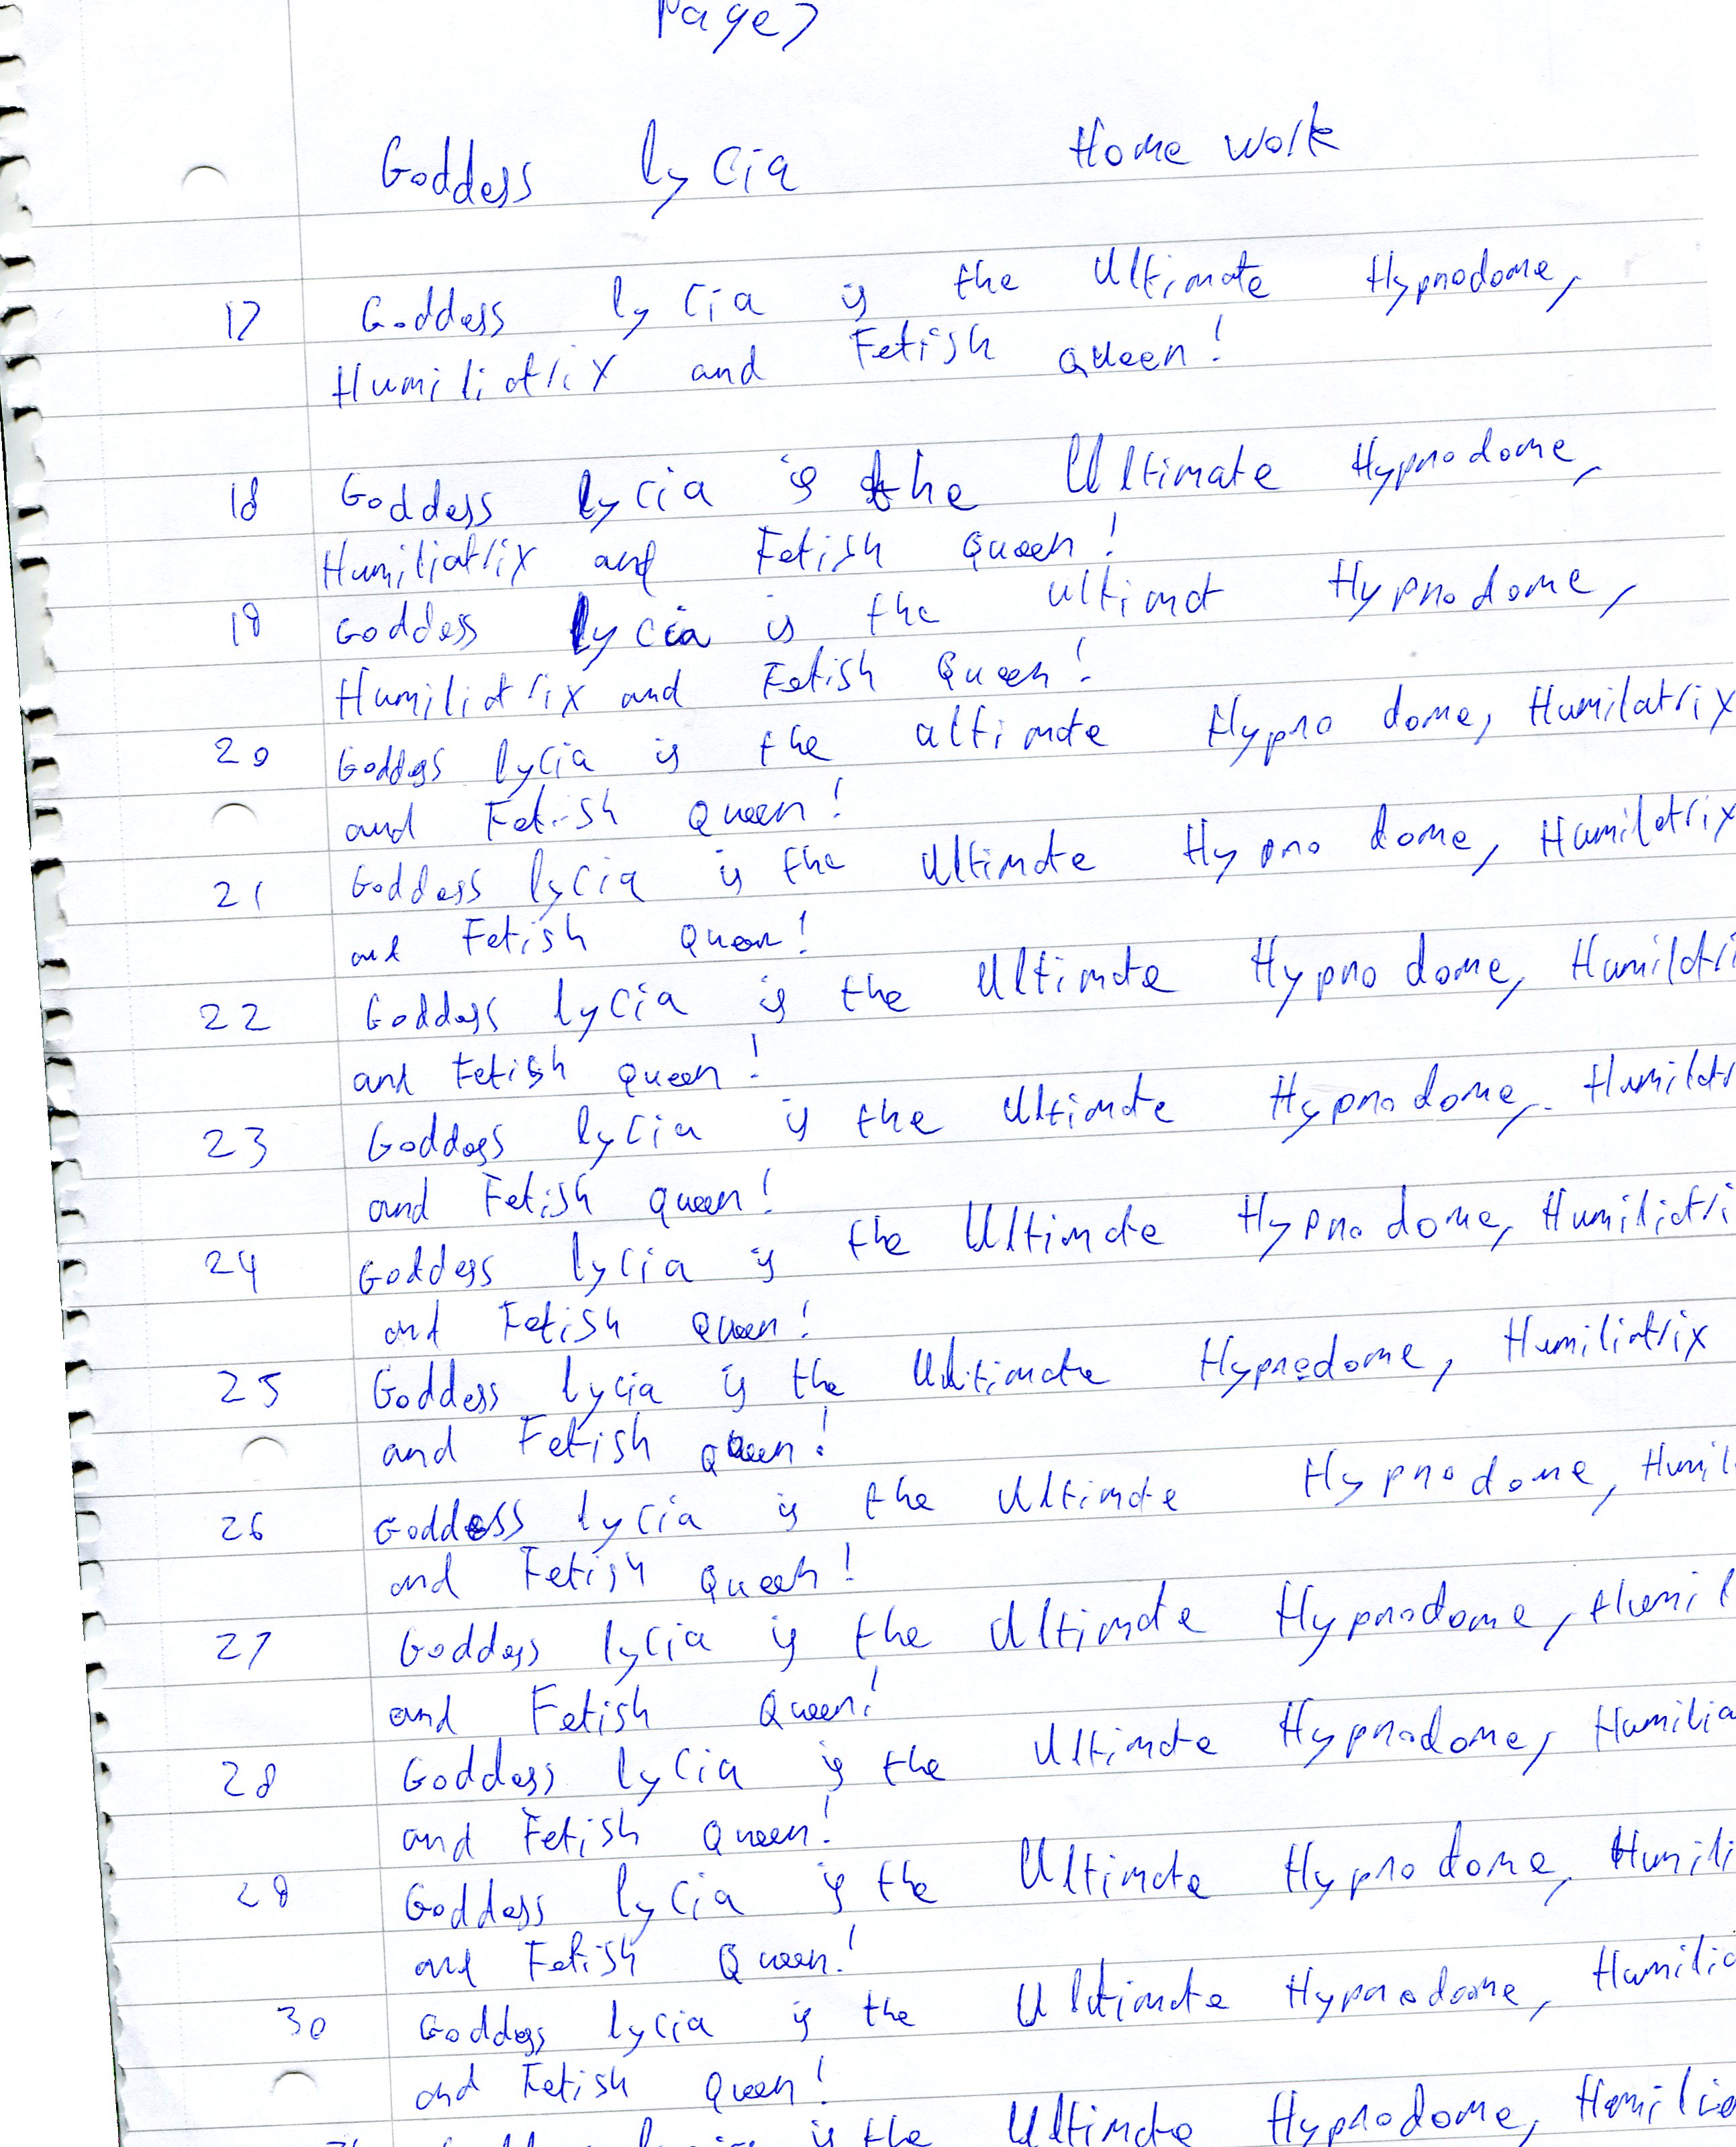 Page 7
Goddess lycia Home work
17 Goddess lycia is the Ultimate Hypnodome,
Humiliatrix and Fetish Queen!
18 Goddess lycia is the Ultimate Hypnodome,
Humiliatrix and Fetish Queen!
19 Goddess lycia is the ultimat Hypnodome,
Humiliatrix and Fetish Queen!
20 Goddess lycia is the ultimate Hypno dome, Humilatrix
and Fetish Queen!
21 Goddess lycia is the Ultimate Hypno dome, Humilatrix
and Fetish Queen!
22 Goddess lycia is the Ultimate Hypno dome, Humilatri
and Fetish Queen!
23 Goddess lycia is the Ultimate Hypnodome, Humilatr
and Fetish Queen!
24 Goddess lycia is the Ultimate Hypnodome, Humiliatri
and Fetish Queen!
25 Goddess lycia is the Ultimate Hypnodome, Humiliatrix
and Fetish Queen!
26 Goddess lycia is the Ultimate Hypnodome, Humil
and Fetish Queen!
27 Goddess lycia is the Ultimate Hypnodome, Humil
and Fetish Queen!
28 Goddess lycia is the Ultimate Hypnodome, Humilia
and Fetish Queen!
29 Goddess lycia is the Ultimate Hypno dome, Humili
and Fetish Queen!
30 Goddess lycia is the Ultimate Hypnodome, Humilia
and Fetish Queen!
is the Ultimate Hypnodome, Humilia